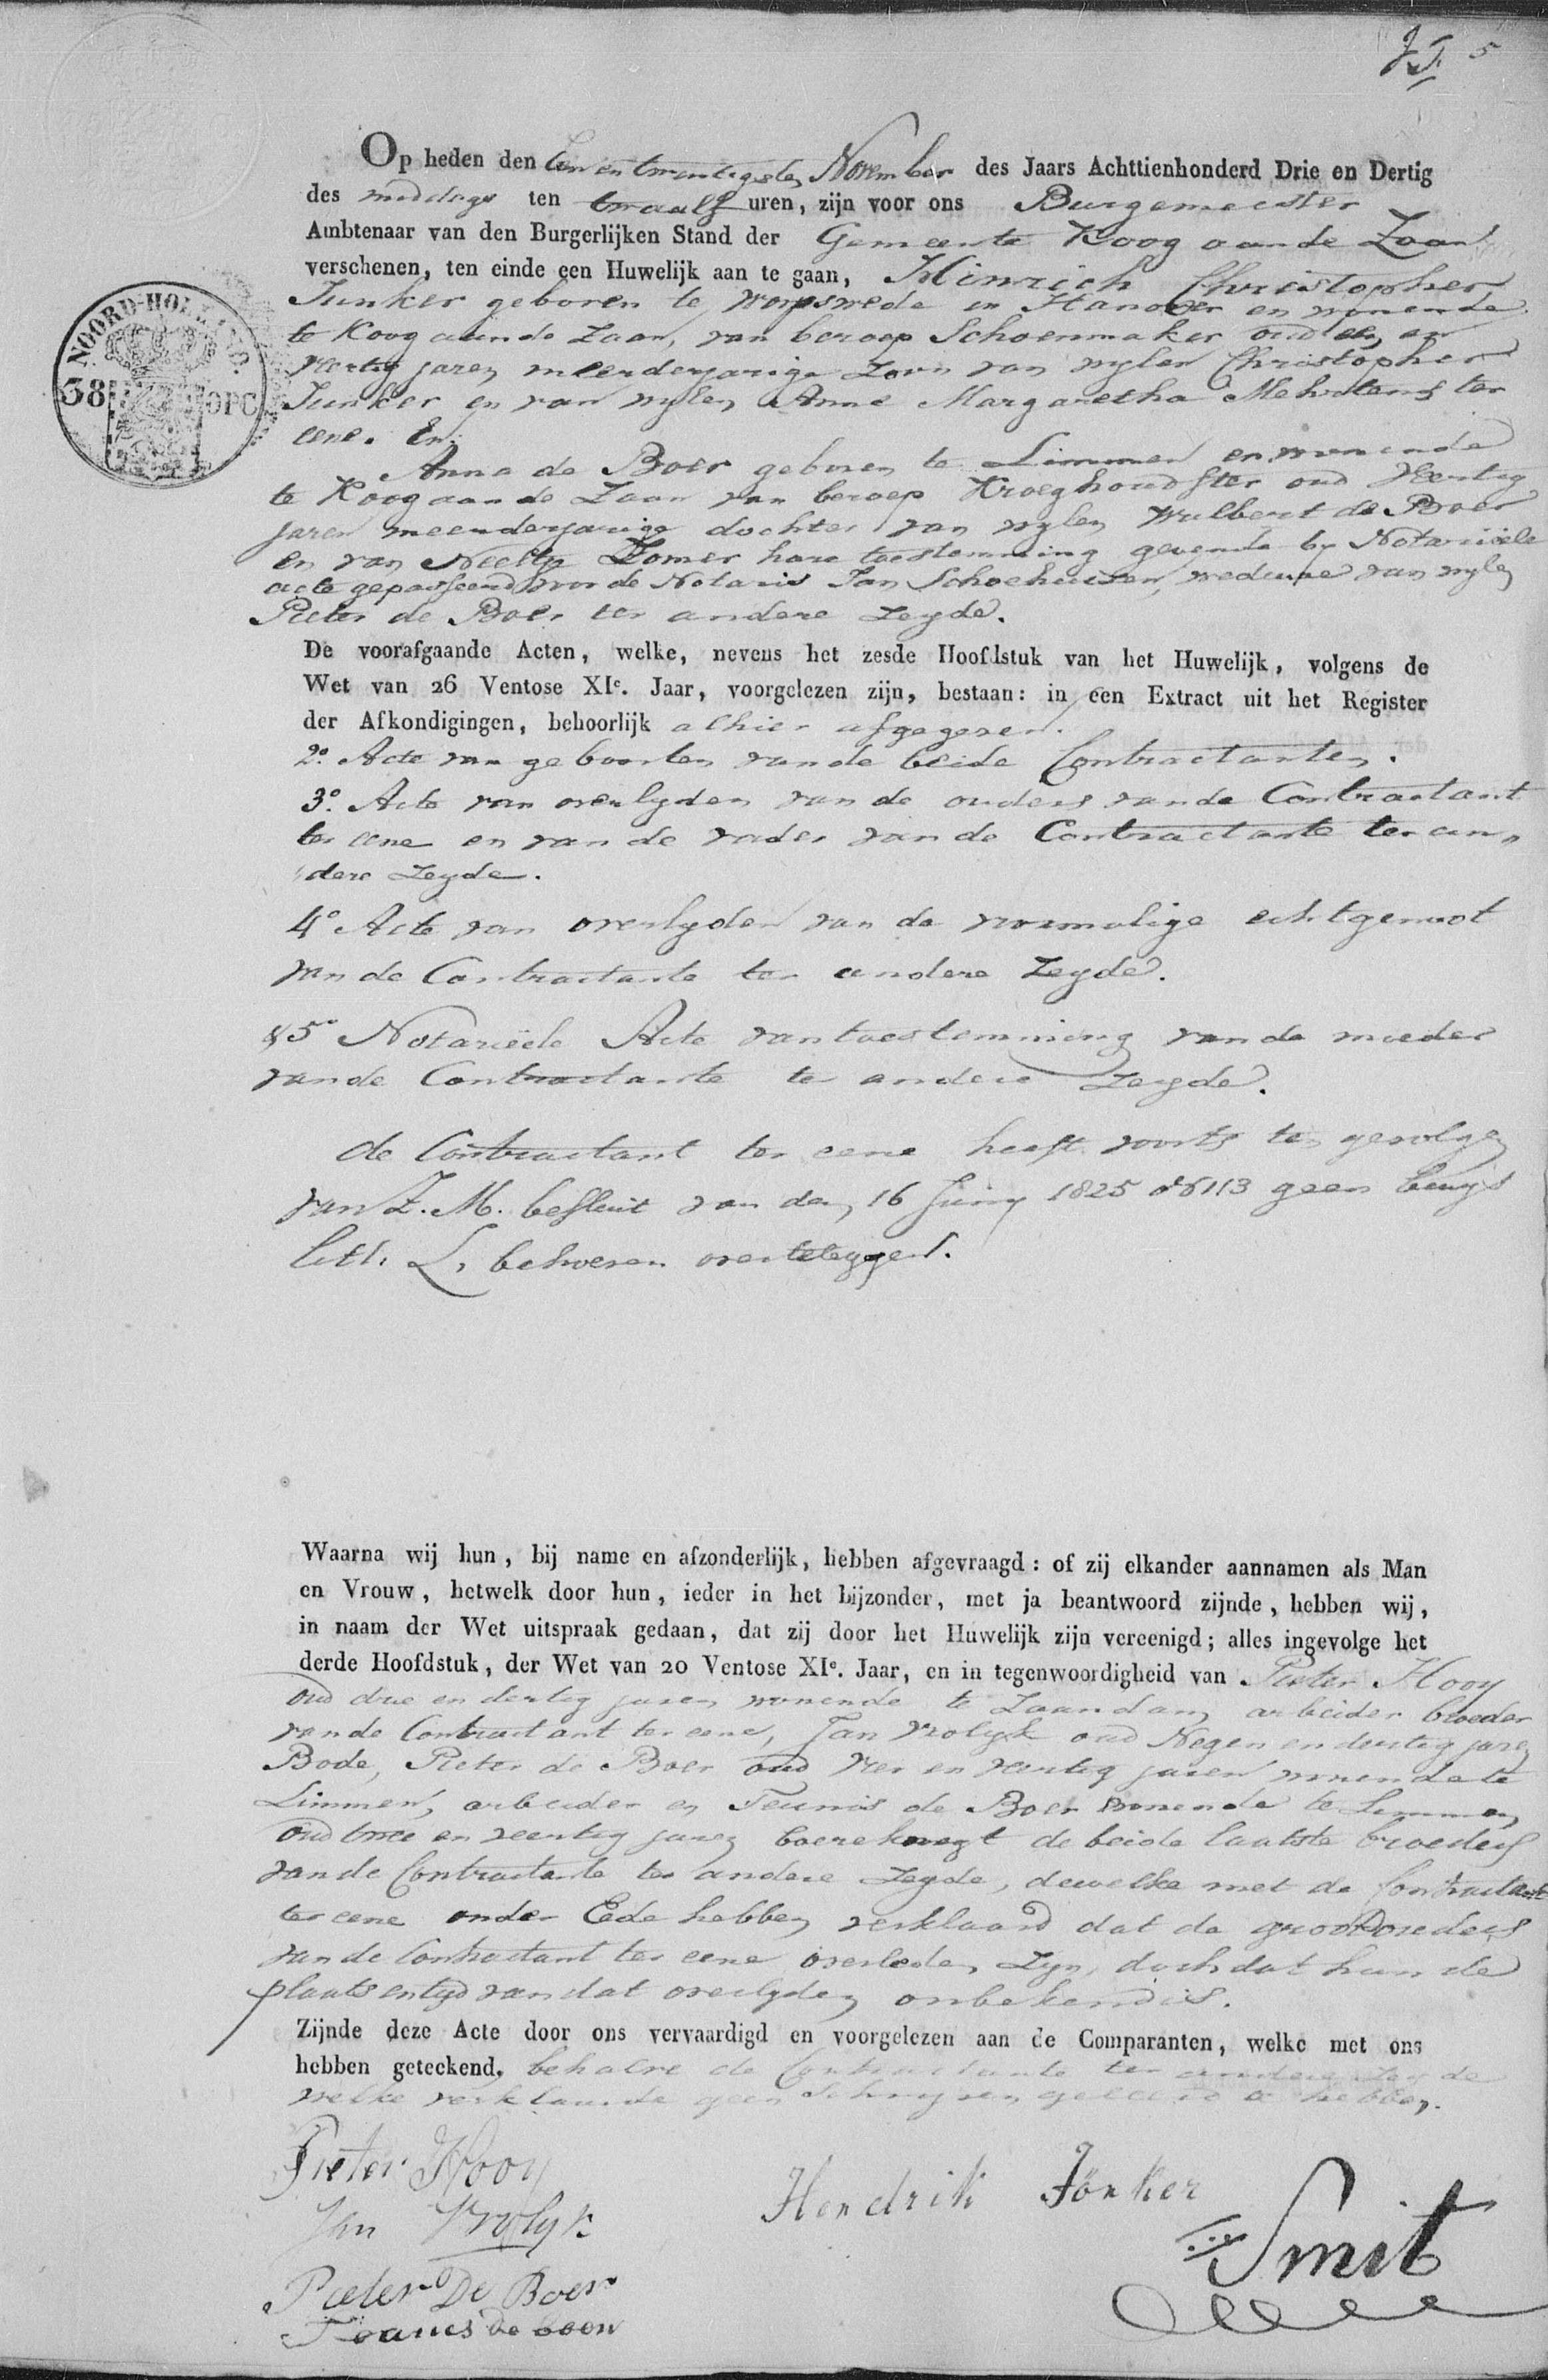 5
Op heden den een en twintigsten November des Jaars Achttienhonderd Drie en Dertig
des middags ten twaalf uren, zijn voor ons Burgemeester
Ambtenaar van den Burgerlijken Stand der Gemeente Koog aan de Zaan
verschenen, ten einde een Huwelijk aan te gaan, Hinrich Christopher
Junker geboren te Worpswede in Hanover en wonende
NOORD-HOLLAND.
te Koog aan de Zaan, van beroep Schoenmaker oud een en
38 OPC
veertig jaren meerderjarige Zoon van wylen Christopher
Junker en van wylen Anne Margaretha Mehrtens ter
eene. En
Anna de Boer geboren te Limmen en wonende
te Koog aan de Zaan van beroep Kroeghoudster oud Veertig
jaren meerderjarige dochter van wylen Wulbert de Boer
en van Neeltje Zomer hare toestemming gevende by Notariëele
acte gepasseerd voor de Notaris Jan Schoehuizen, weduwe van wylen
Pieter de Boer ter andere Zeyde.
De voorafgaande Acten, welke, nevens het zesde Hoofdstuk van het Huwelijk, volgens de
Wet van 26 Ventose XIe. Jaar, voorgelezen zijn, bestaan: in een Extract uit het Register
der Afkondigingen, behoorlijk alhier afgegeven.
2º. Acte van geboorten van de beide Contractanten.
3º. Acte van overlyden van de ouders van de Contractant
ter eene en van de vader van de Contractante ter an„
„dere Zeyde.
4º Acte van overlyden van de voormalige echtgenoot
van de Contractante ter andere Zeyde.
& 5º Notariëele Acte van toestemming van de moeder
van de Contractante ter andere Zeyde.
de Contractant ter eene heeft voorts ten gevolge
van Z. M. besluit van den 16 Juny 1825 Nº 113 geen bewys
Litt. L, behoeven overteleggen.
Waarna wij hun, bij name en afzonderlijk, hebben afgevraagd: of zij elkander aannamen als Man
en Vrouw, hetwelk door hun, ieder in het bijzonder, met ja beantwoord zijnde, hebben wij,
in naam der Wet uitspraak gedaan, dat zij door het Huwelijk zijn vereenigd; alles ingevolge het
derde Hoofdstuk, der Wet van 20 Ventose XIe. Jaar, en in tegenwoordigheid van Pieter Kooy
oud drie en dertig jaren wonende te Zaandam arbeider broeder
van de Contractant ter eene, Jan Vrolyk oud Negen en dertig jaren
Bode, Pieter de Boer oud Vier en Veertig jaren wonende te
Limmen, arbeider en Teunis de Boer wonende te Limmen
oud twee en veertig jaren boereknegt de beide laatste broeders
van de Contractante ter andere Zeyde, dewelke met de Contractant
ter eene onder Eede hebben verklaard dat de grootouders
van de Contractant ter eene overleden Zyn, doch dat hun de
plaats en tyd van dat overlyden onbekend is.
Zijnde deze Acte door ons vervaardigd en voorgelezen aan de Comparanten, welke met ons
hebben geteekend, behalve de Contractante ter andere Zeyde
welke verklaarde geen Schryven geleerd te hebben.
Pieter Kooy
Hendrik Jönker
Jan Vrolyk
Smit
Pieter De Boer
Teunes de boer